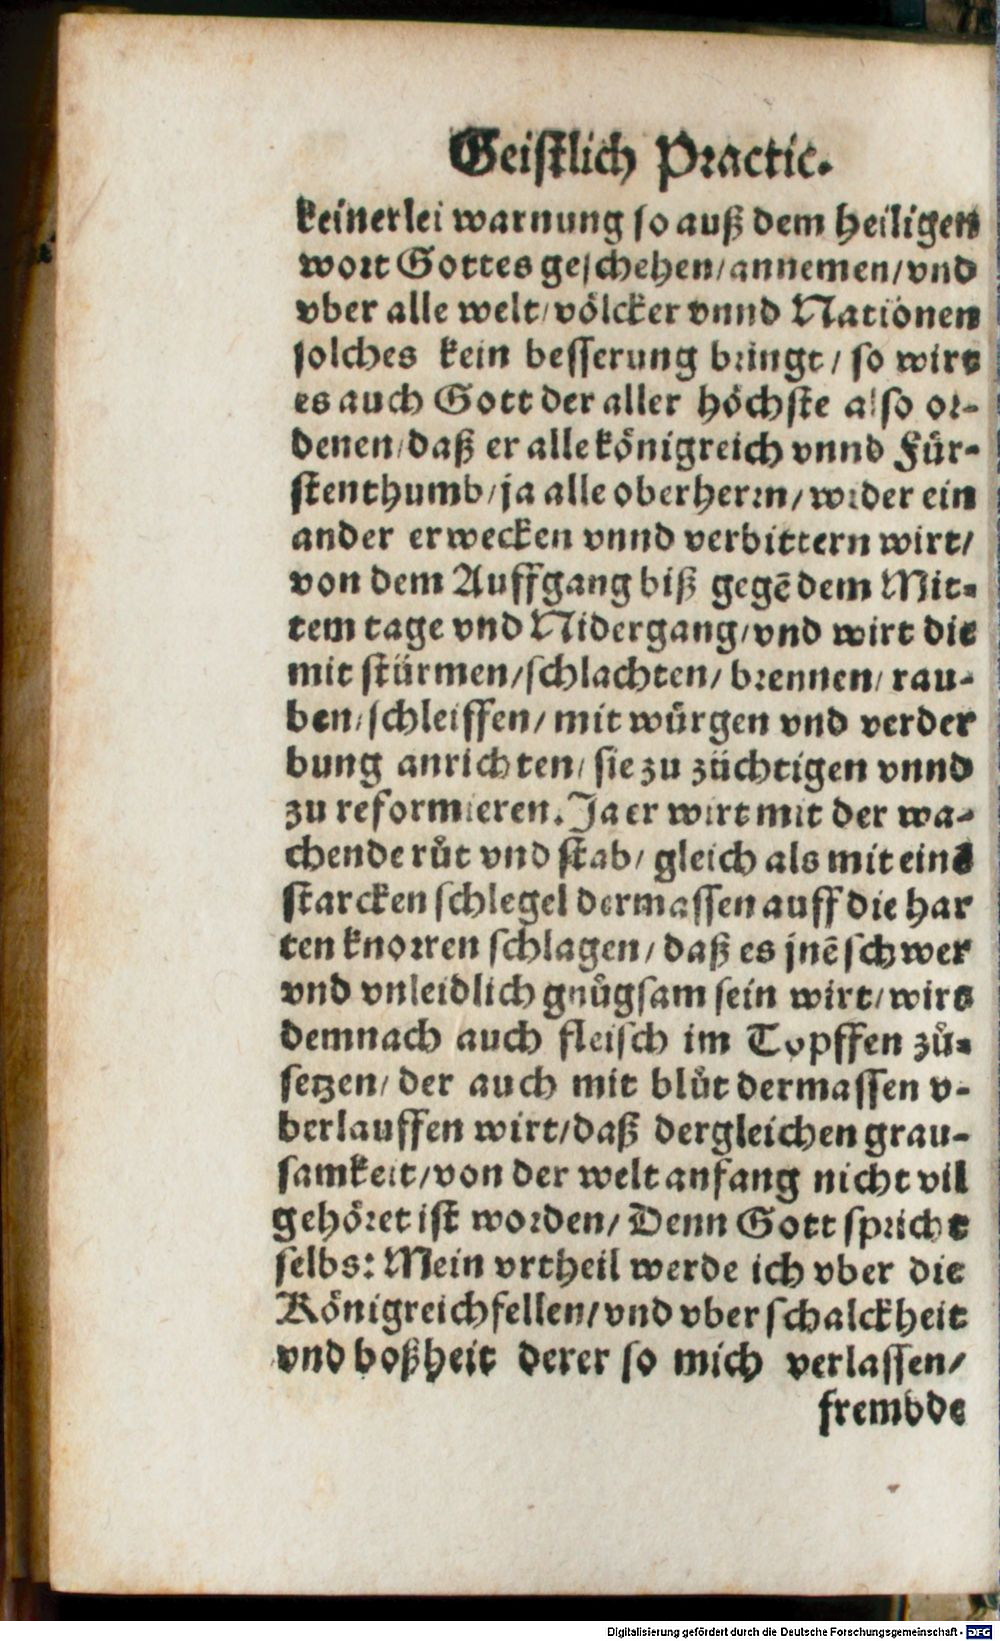 Geiſtlich Practic.
keinerlei warnung ſo auß dem heiligen
wort Gottes geſchehen/annemen/vnd
vber alle welt/völcker vnnd Nationen
ſolches kein beſſerung bringt/ ſo wirt
es auch Gott der aller höchſte alſo or-
denen/daß er alle königreich vnnd Für-
ſtenthumb/ja alle oberherrn/wider ein
ander erwecken vnnd verbittern wirt/
von dem Auffgang biß gegē dem Mit-
tem tage vnd Nidergang/vnd wirt die
mit ſtürmen/ſchlachten/brennen/rau-
ben/ſchleiffen/mit würgen vnd verder
bung anrichten/ſie zu züchtigen vnnd
zu reformieren. Ja er wirt mit der wa-
chende růt vnd ſtab/ gleich als mit einē
ſtarcken ſchlegel dermaſſen auff die har
ten knorren ſchlagen/ daß es jnē ſchwer
vnd vnleidlich gnůgſam ſein wirt/wirt
demnach auch fleiſch im Topffen zů-
ſetzen/ der auch mit blůt dermaſſen v-
berlauffen wirt/daß dergleichen grau-
ſamkeit/von der welt anfang nicht vil
gehöret iſt worden/ Denn Gott ſpricht
ſelbs: Mein vrtheil werde ich vber die
Königreich fellen/vnd vber ſchalckheit
vnd boßheit derer ſo mich verlaſſen/
frembde
Digitalisierung gefördert durch die Deutsche Forschungsgemeinschaft - DFG